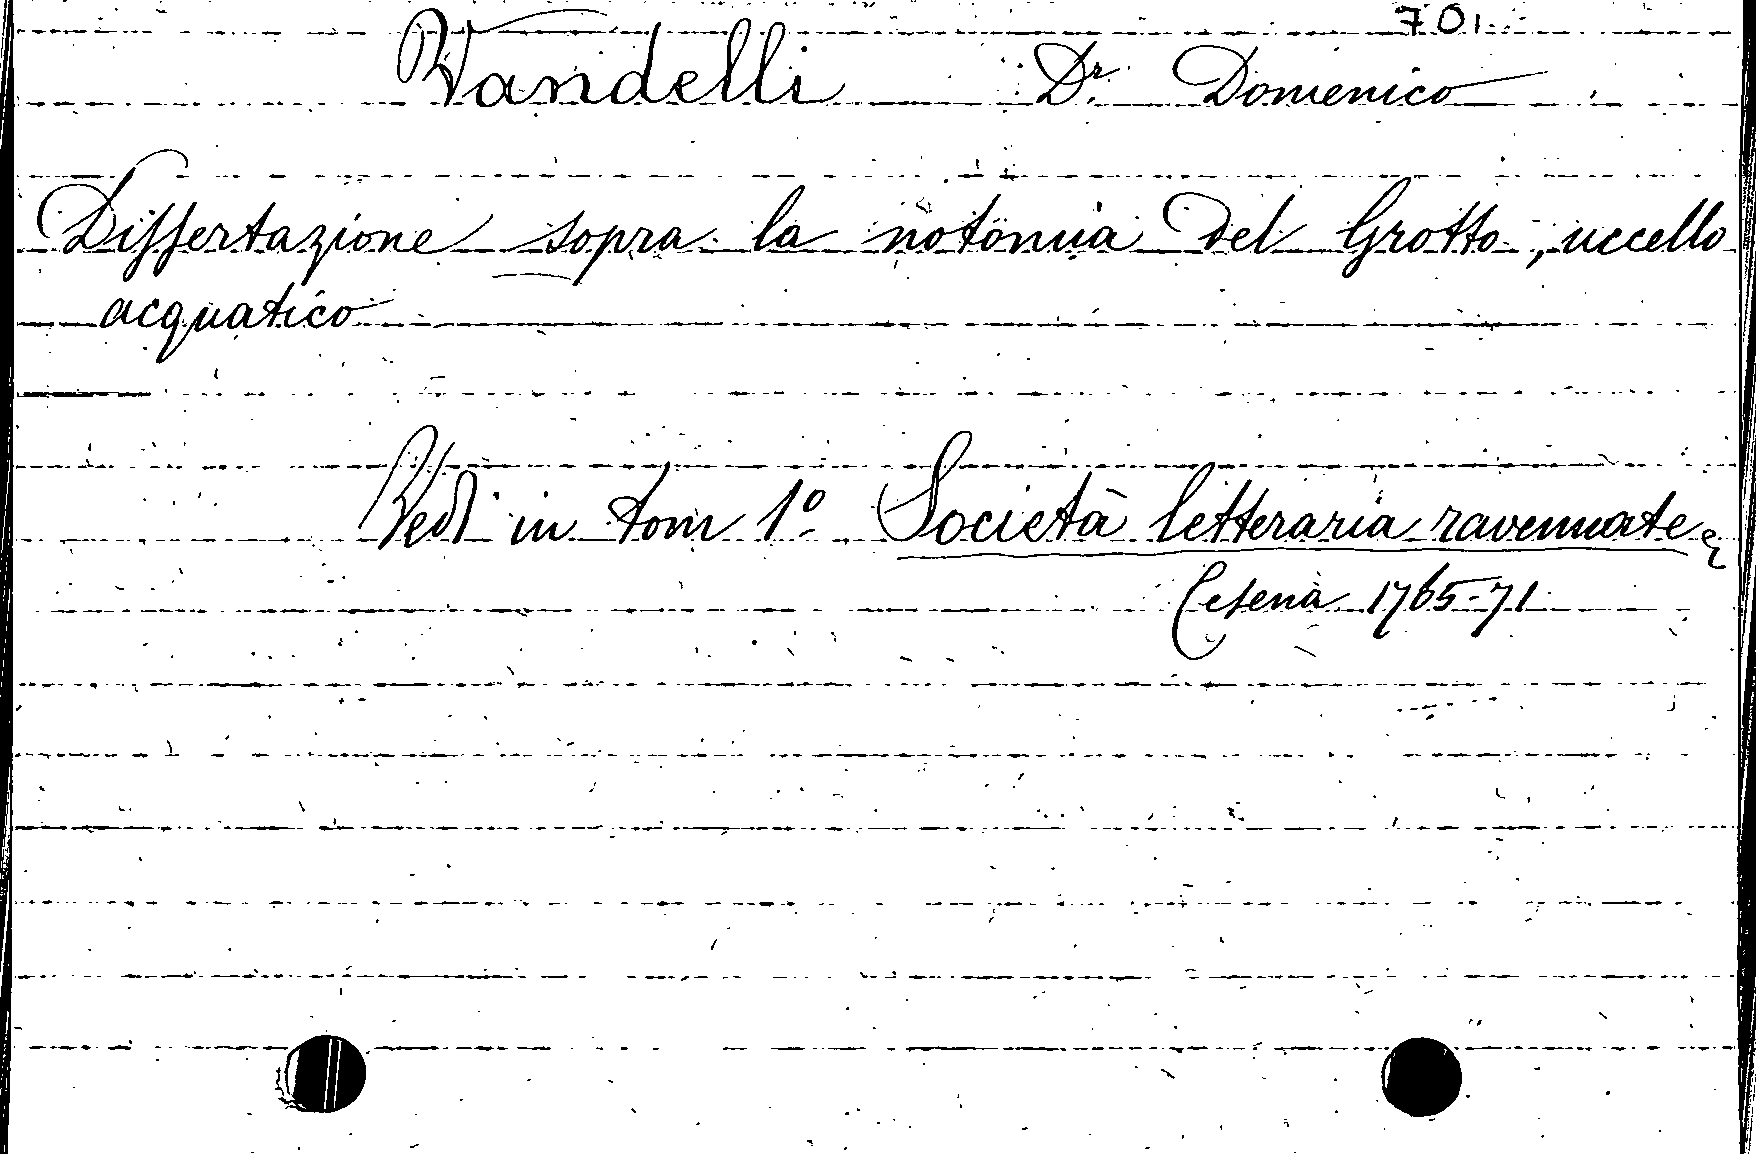 701.
Vandelli Dr. Domenico
Dissertazione sopra la notomia del Grotto, uccello
acquatico
Vedi in tom 1º Società letteraria ravennate
Cesena 1765-71